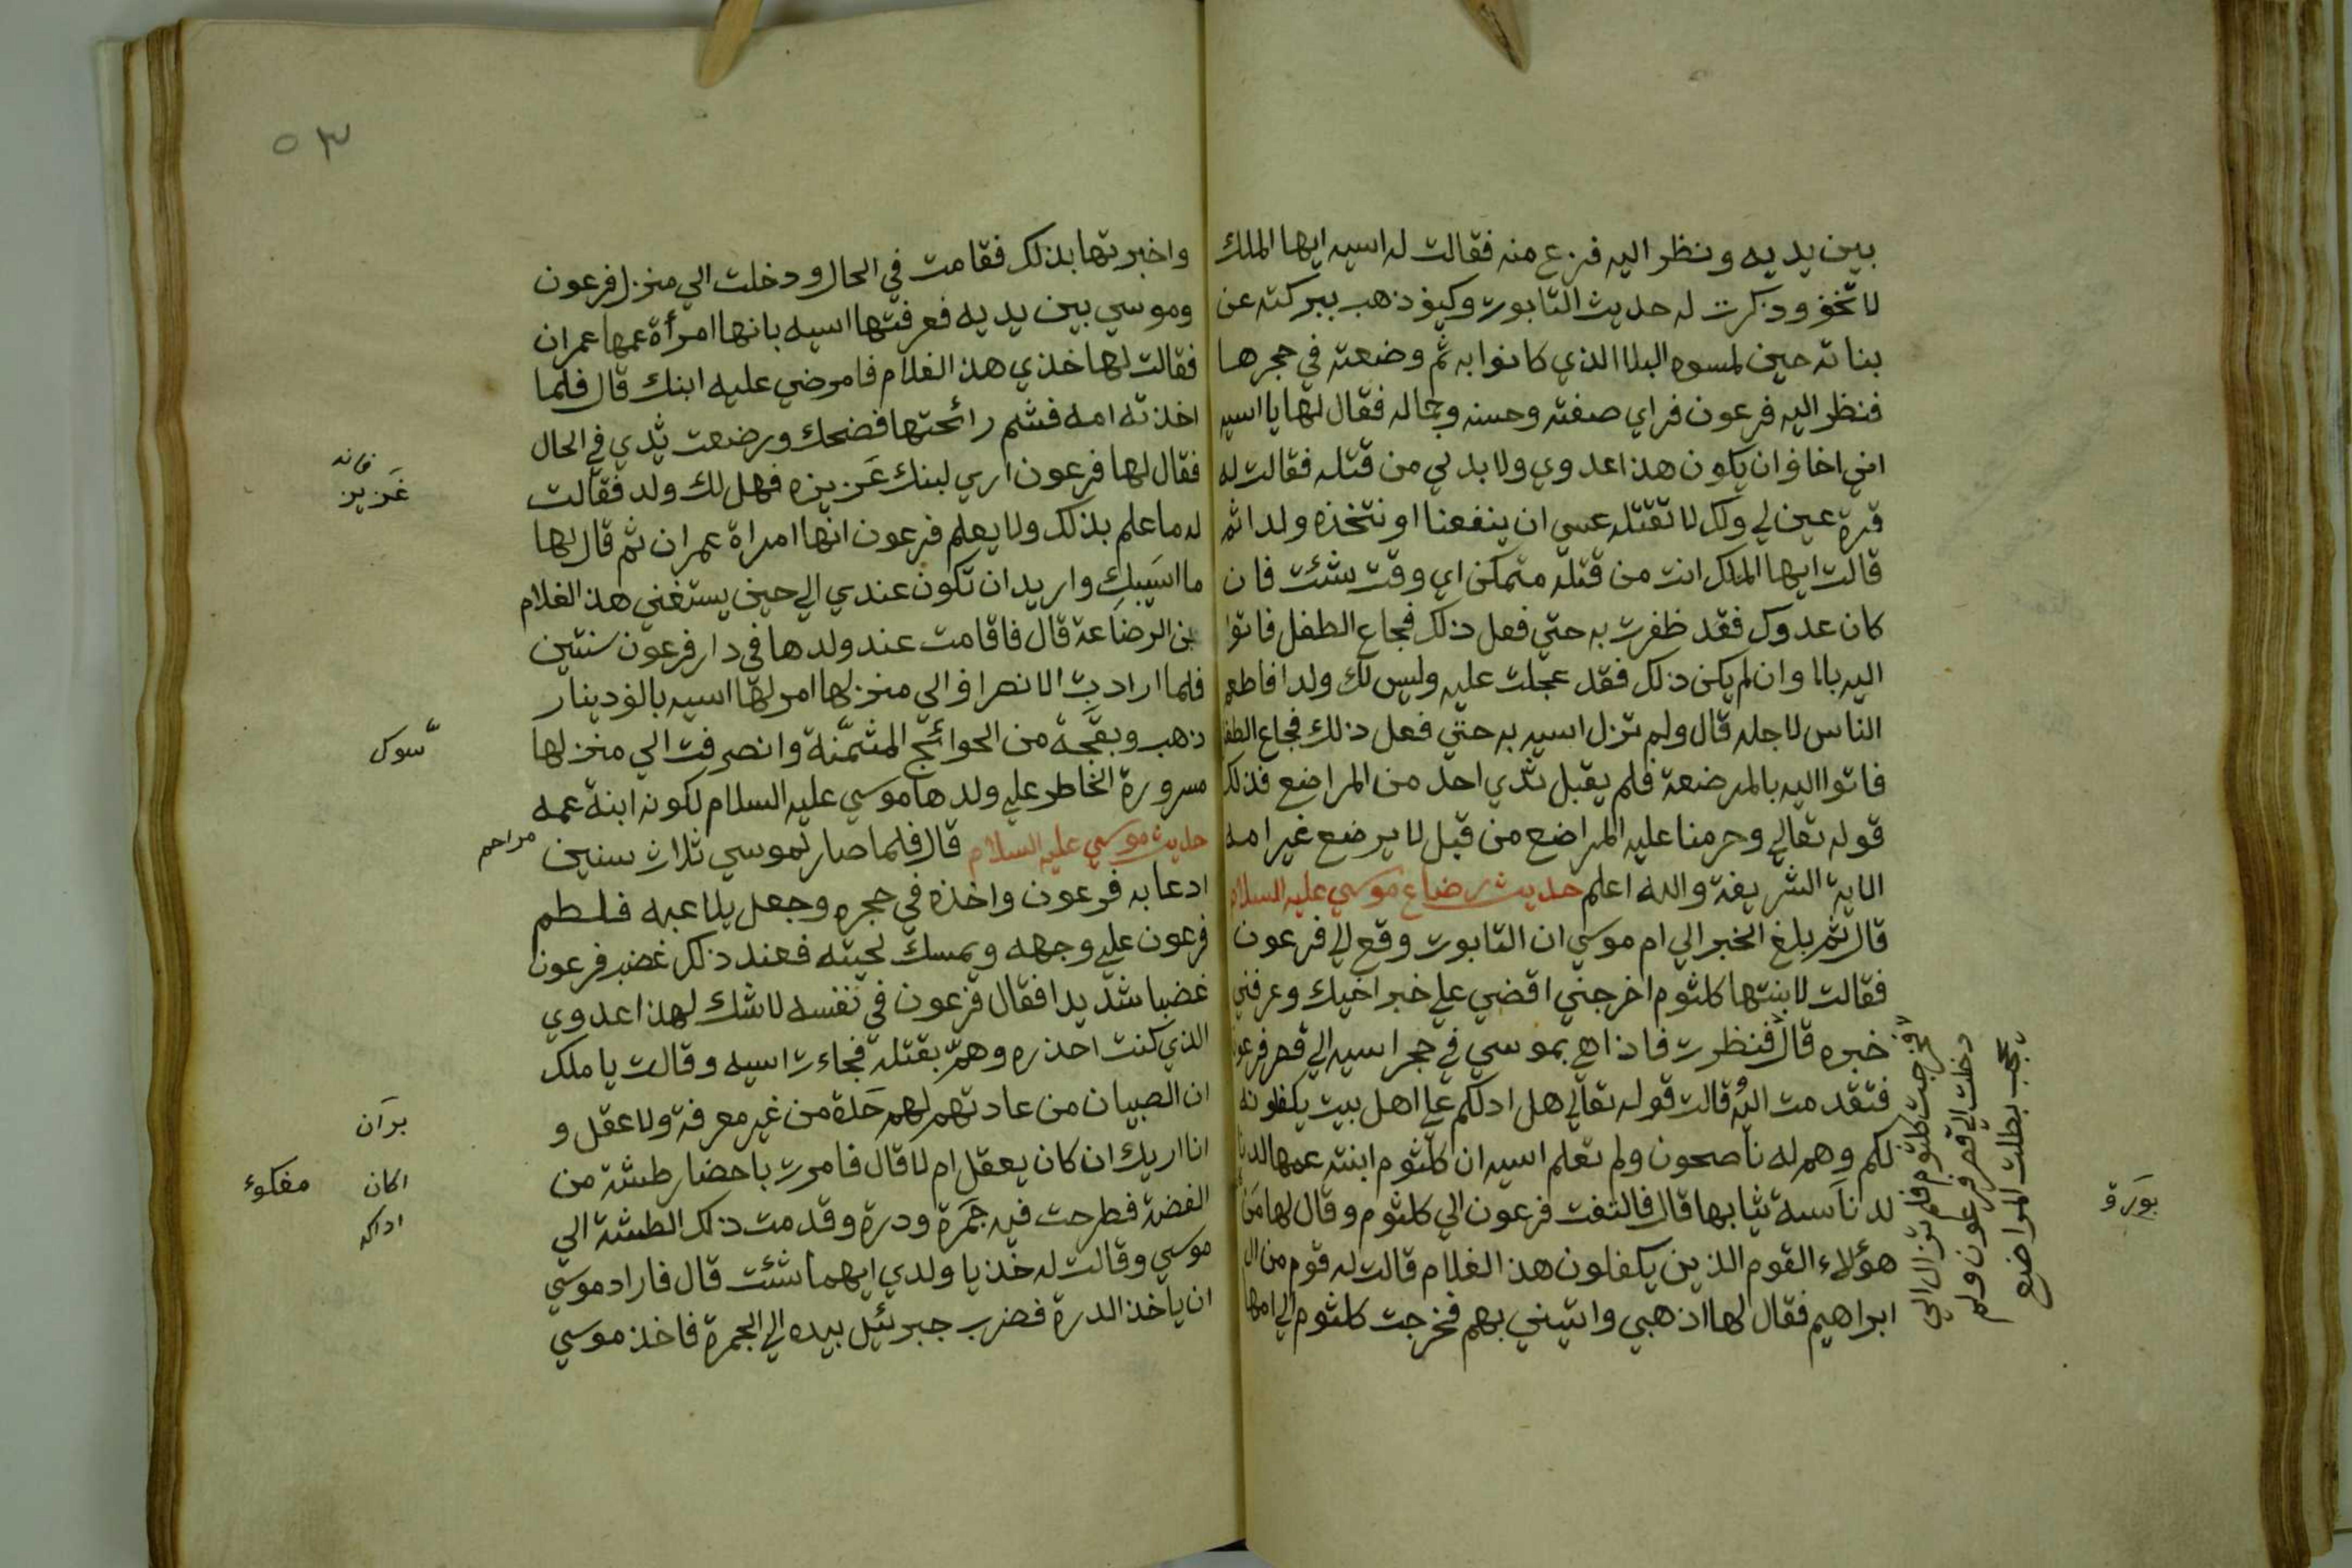 بين يديه ونظر اليه فزع منه فقالت له اسيه ايها الملك
لا تخف وذكرت له حديث التابوت وكيف ذهب ببركته عن
بناته حين لمسوه البلا الذي كانوا به ثم وضعته في حجرها
فنظر اليه فرعون فراي صفته وحسنه وجماله فقال لها يا اسيه
اني اخاف ان يكون هذا عدوي ولا بد لي من قتله فقالت له
قرة عين لي ولك لا تقتله عسي ان ينفعنا او نتخذه ولدا ثم
قالت ايها الملك انت من قتله متمكن اي وقت شئت فان
كان عدوك فقد ظفرت به حتي فعل ذلك فجاع الطفل فاتوا
اليه بالا وان لم يكن ذلك فقد عجلت عليه وليس لك ولدا فاطعم
الناس لاجله قال ولم تزل اسيه به حتي فعل ذلك فجاع الطفل
فاتوا اليه بالمرضعة فلم يقبل ثدي احد من المراضع فذلك
قوله تعالي وحرمنا عليه المراضع من قبل لا يرضع غير امه
الاية الشريفة والله اعلم حديث رضاع موسي عليه السلام
قال ثم بلغ الخبر الي ام موسي ان التابوت وقع الي فرعون
فقالت لابنتها كلثوم اخرجني اقضي علي خبر اخيك وعرفني
خبره قال فنظرت فاذا هي بموسي في حجر اسيه الي قصر فرعون
فتقدمت اليه قالت قوله تعالي هل ادلكم علي اهل بيت يكفلونه
لكم وهم له ناصحون ولم تعلم اسيه ان كلثوم ابنته عمها
لدناسة ثيابها قال فالتفت فرعون الي كلثوم وقال لها من
هؤلاء القوم الذين يكفلون هذا الغلام قالت له قوم من ال
ابراهيم فقال لها اذهبي واتيني بهم فخرجت كلثوم الي امها
فخرجت كلثوم فلم تزال الي
دخلت الي قصر فرعون ولم
تجب بطلب المراضع
بورق
٥٣
واخبرتها بذلك فقامت في الحال ودخلت الي منزل فرعون
وموسي بين يديه فعرفتها اسيه بانها امرأة عمها عمران
فقالت لها خذي هذ الغلام فامرضي عليه ابنك قال فلما
اخذته امه فشم رائحتها فضحك ورضعت ثدي في الحال
فقال لها فرعون اري لبنك غزيزه فهل لك ولد فقالت
له ما علم بذلك ولا يعلم فرعون انها امراة عمران ثم قال لها
ما اسيبك واريد ان تكون عندي الي حين يستغني هذ الغلام
عن الرضاعة قال فاقامت عند ولدها في دار فرعون سنتين
فلما ارادت الانصراف الي منزلها امر لها اسيه بالف دينار
ذهب وبقجة من الحوائج المثمنة وانصرفت الي منزلها
مسرورة الخاطر علي ولدها موسي عليه السلام لكونه ابنة عمه
حديث موسي عليه السلام قال فلما صار لموسي ثلاث سنين
ادعا به فرعون واخذه في حجره وجعل يلاعبه فلطم
فرعون علي وجهه ويمسك لحيته فعند ذلك غضب فرعون
غضبا شديدا فقال فرعون في نفسه لا شك لهذا عدوي
الذي كنت احذره وهمّ بقتله فجاءت اسيه وقالت يا ملك
ان الصبيان من عادتهم لهم من غير معرفة ولا عقل و
انا اريك ان كان يعقل ام لا قال فامرت باحضار طشة من
الفضة فطرحت فيه جمرة ودرة وقدمت ذلك الطشة الي
موسي وقالت له خذ يا ولدي ايهما شئت قال فاراد موسي
ان ياخذ الدرة فضرب جبرئيل بيده الي الجمرة فاخذ موسي
فانه
غزير
سوك
مراحم
بران
اكان
اداكه